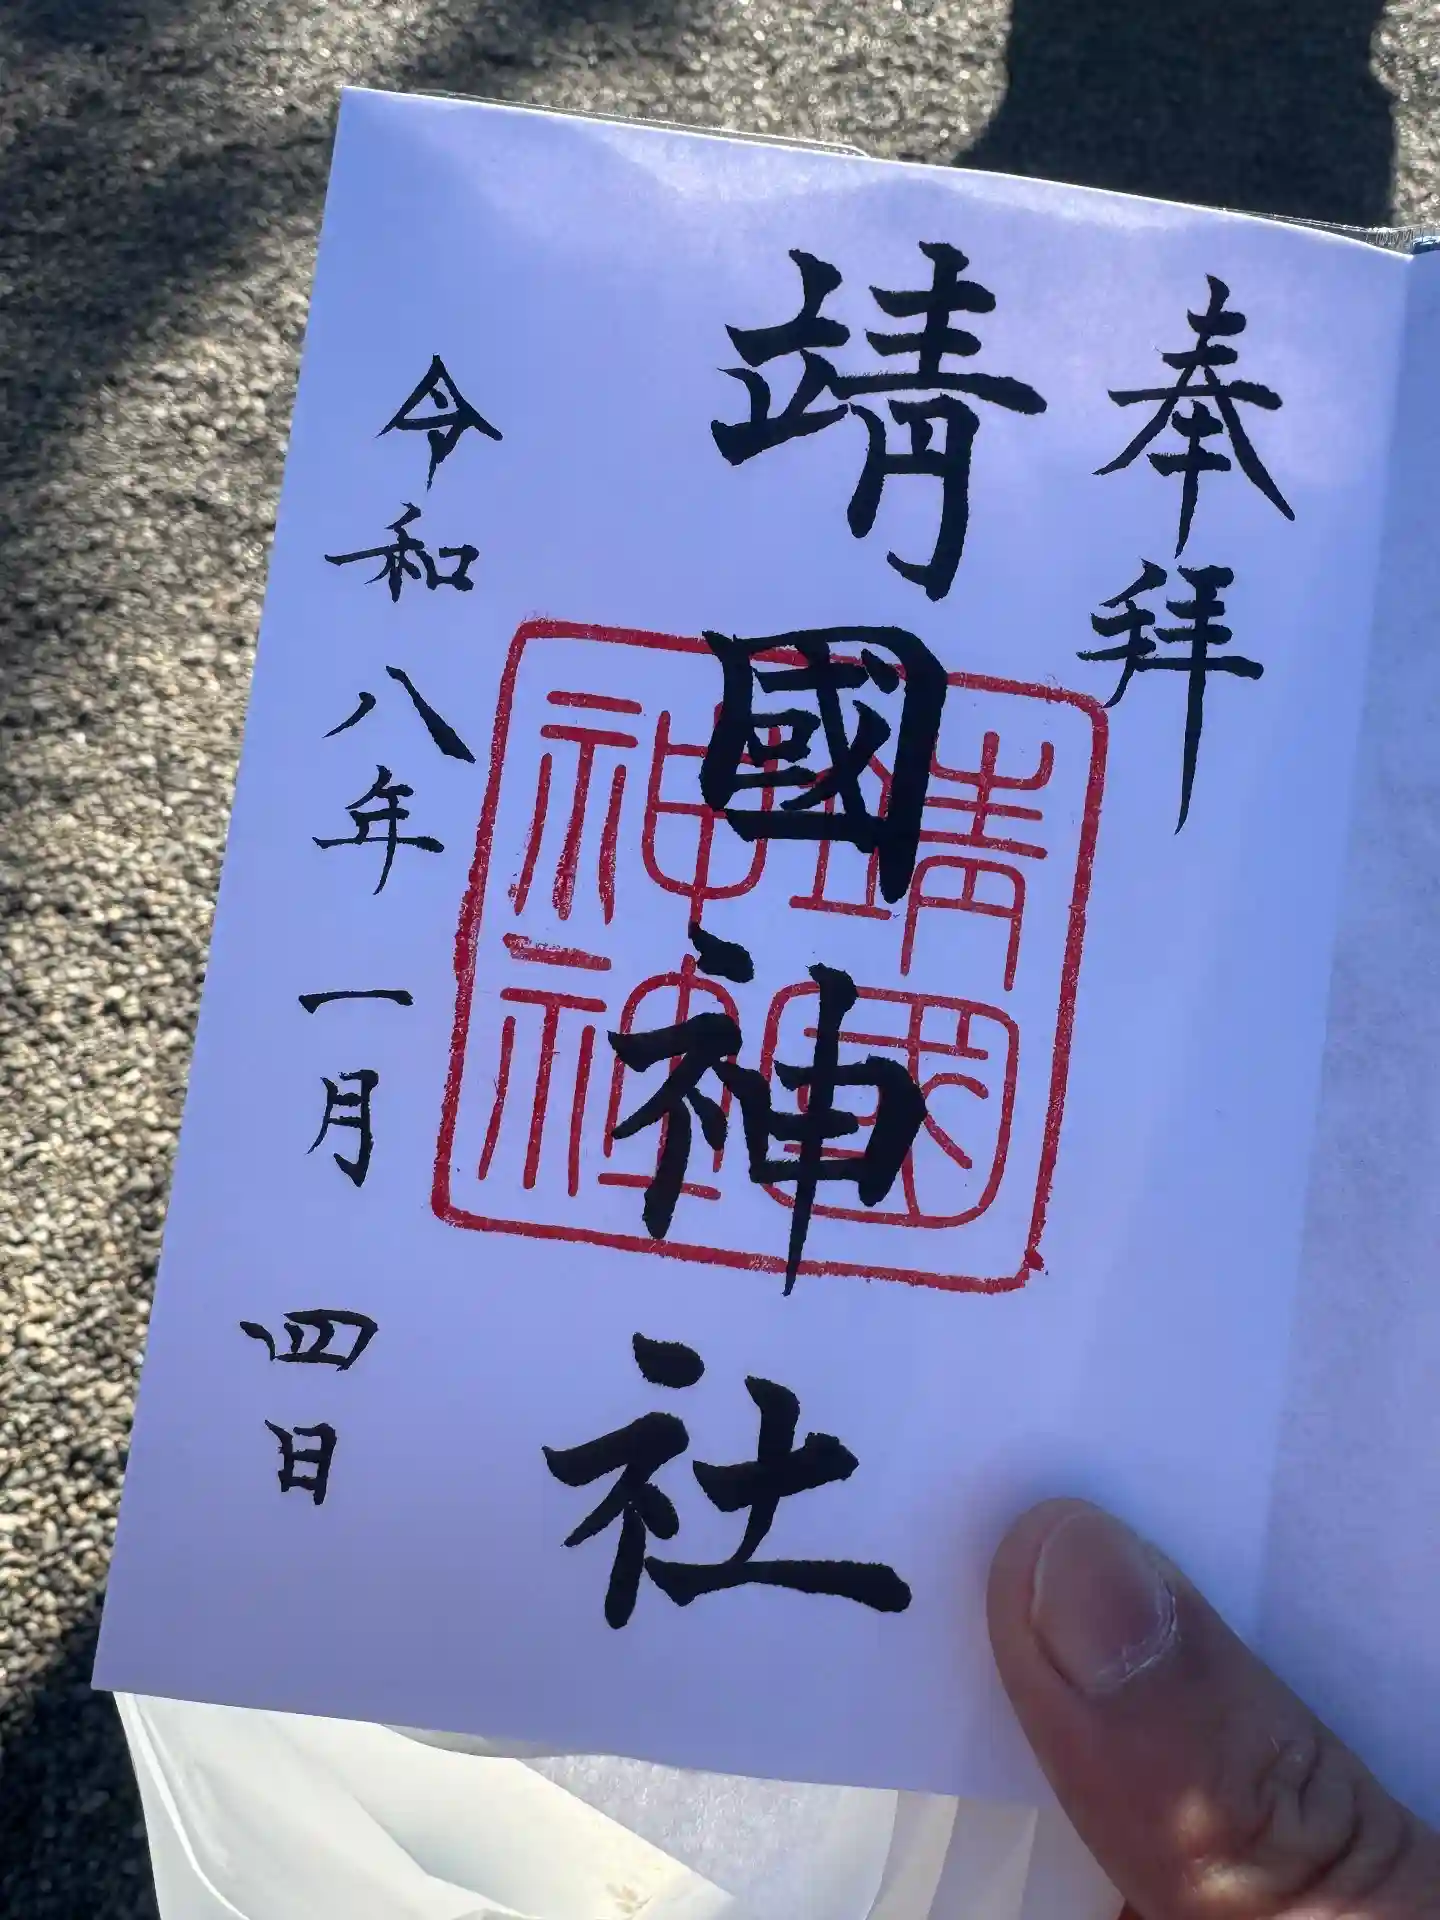 奉拝
靖國神社
靖國
神社
令和八年一月四日